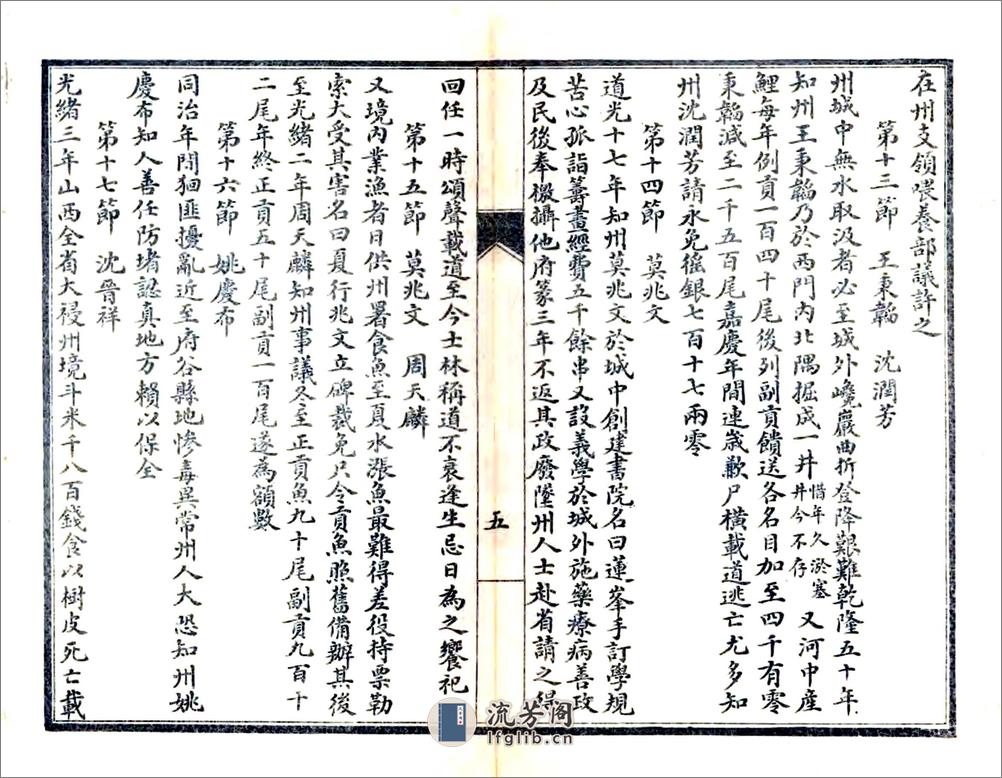 在州支領喂養部議許之
第十三節 王秉韜 沈潤芳
州城中無水取汲者必至城外巉巖曲折登降艱難乾隆五十年
知州王秉韜乃於西門內北隅掘成一井惜年久淤塞井今不存又河中產
鯉每年例貢一百四十尾後列副貢饋送各名目加至四千有零
秉韜減至二千五百尾嘉慶年間連歲歉尸橫載道逃亡尤多知
州沈潤芳請永免徭銀七百十七兩零
第十四節 莫兆文
道光十七年知州莫兆文於城中創建書院名曰蓮峯手訂學規
苦心孤詣籌畫經費五千餘串又設義學於城外施藥療病善政
及民後奉檄攝他府篆三年不返其政廢墜州人士赴省請之得
五
回任一時頌聲載道至今士林稱道不衰逢生忌日為之饗祀
第十五節 莫兆文 周天麟
又境內業漁者日供州署食魚至夏水漲魚最難得差役持票勒
索大受其害名曰夏行兆文立碑裁免只令貢魚照舊備辦其後
至光緒二年周天麟知州事議冬至正貢魚九十尾副貢九百十
二尾年終正貢五十尾副貢一百尾遂為額數
第十六節 姚慶布
同治年間狪匪擾亂近至府谷縣地慘毒異常州人大恐知州姚
慶布知人善任防堵認真地方賴以保全
第十七節 沈晉祥
光緒三年山西全省大祲州境斗米千八百錢食以樹皮死亡載
流芳阁
lfglib.cn